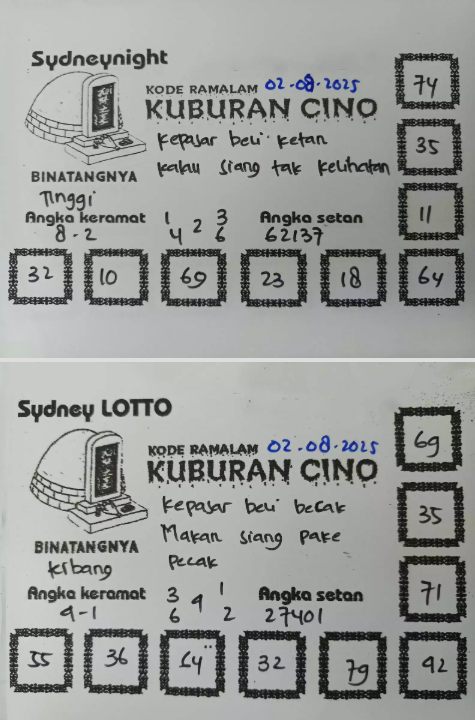 Sydneynight
KODE RAMALAM 02-08-2025
KUBURAN CINO
74
kepasar beli ketan
kalau siang tak kelihatan
35
BINATANGNYA
Tinggi
Angka keramat 1 3 Angka setan
8-2 4 2 6 62137
11
32 10 69 23 18 64
Sydney LOTTO
KODE RAMALAM 02-08-2025
KUBURAN CINO
69
kepasar beli becak
Makan siang pake
pecak
35
BINATANGNYA
Angka keramat 3 1 Angka setan
9-1 6 9 2 27401
71
55 36 64 32 79 92